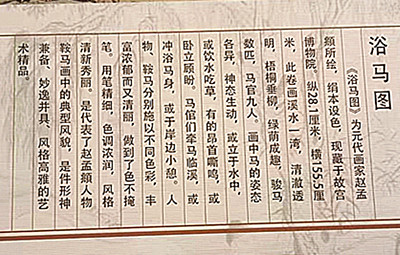 浴马图
《浴马图》为元代画家赵孟
頫所绘，绢本设色，现藏于故宫
博物院。纵28.1厘米，横155.5厘
米，此卷画溪水一湾，清澈透
明，梧桐垂柳，绿荫成趣，骏马
数匹，马官九人。画中马的姿态
各异，神态生动，或立于水中，
或饮水吃草，有的昂首嘶鸣，或
卧立顾盼。马官们牵马临溪，或
冲浴马身，或于岸边小憩。人
物、鞍马分别施以不同色彩，丰
富浓郁而又清丽，做到了色不掩
笔。用笔精细，色调浓润，风格
清新秀丽。是代表了赵孟頫人物
鞍马画中的典型风貌，是件形神
兼备、妙逸并具、风格高雅的艺
术精品。